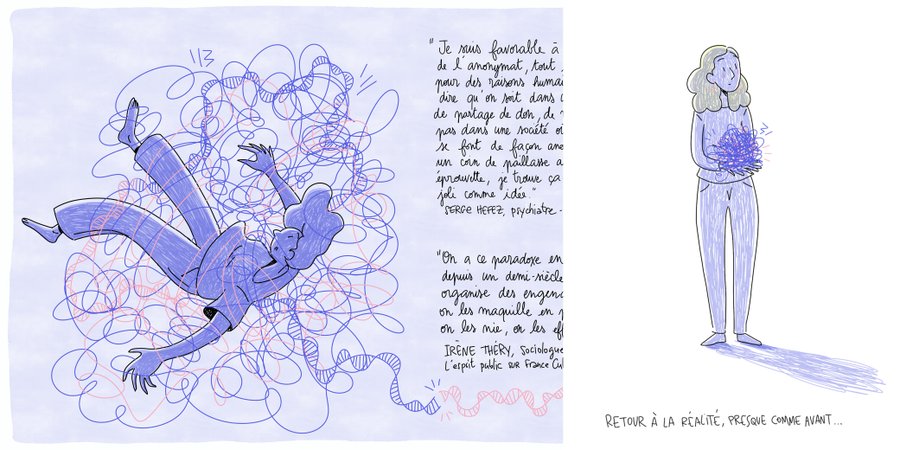 "Je suis favorable à
de l'anonymat, tout
pour des raisons huma
dire qu'on soit dans
de partage de don, de
pas dans une société
se font de façon
un coin de paillasse a
éprouvette, je trouve ça
joli comme idée."
SERGE HEFEZ, psychiatre -
"On a ce paradoxe en
depuis un demi-siècle
organise des engen
on les maquille en
on les nie, or les
IRÈNE THÉRY, Sociologue
L'esprit public sur France Cul
RETOUR À LA RÉALITÉ, PRESQUE COMME AVANT...